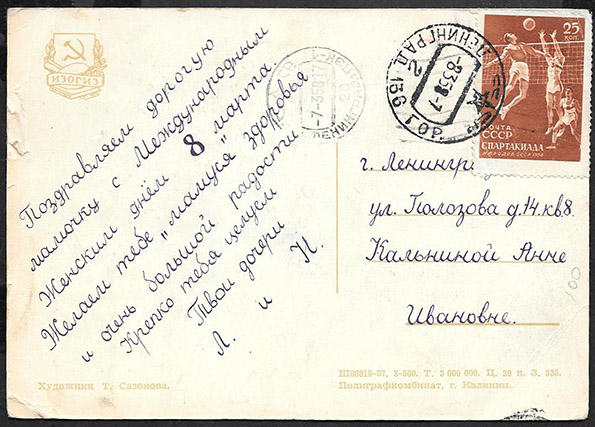 ИЗОГИЗ
Поздравляем дорогую
мамочку с Международным
Женским днём 8 марта.
Желаем тебе "мамуся" здоровья
и очень большой радости
Крепко тебя целуем
Твои дочери
Л. и Н.
Художник Т. Сазонова.
ЛЕНИНГРАД
-8358-7
25
КОП.
ПОЧТА
СССР
СПАРТАКИАДА
НАРОДОВ СССР 1956
г. Ленинград
ул. Полозова д.14.кв8.
Кальниной Анне
Ивановне.
100
Ш03819-57. 3-500. Т. 3 000 000. Ц. 20 к. З. 535.
Полиграфкомбинат, г. Калинин.